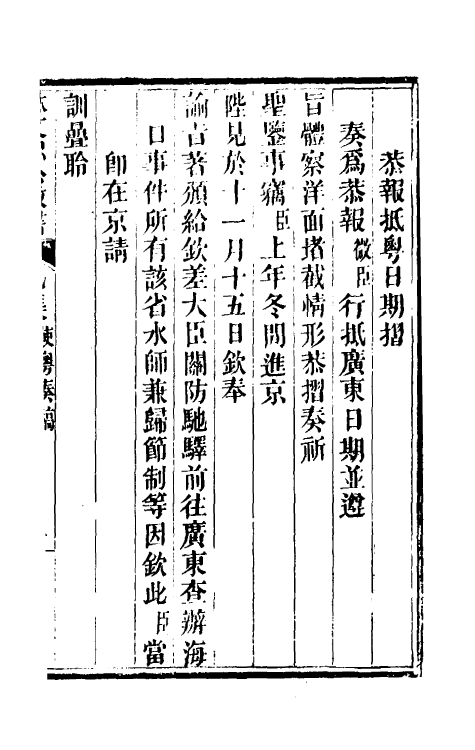 恭報抵粵日期摺
奏爲恭報微臣行抵廣東日期並遵
旨體察洋面堵截情形恭摺奏祈
聖鑒事竊臣上年冬間進京
陛見於十一月十五日欽奉
諭旨著頒給欽差大臣關防馳驛前往廣東查辦海
口事件所有該省水師兼歸節制等因欽此臣當
卽在京請
訓疊聆
使粵奏稿